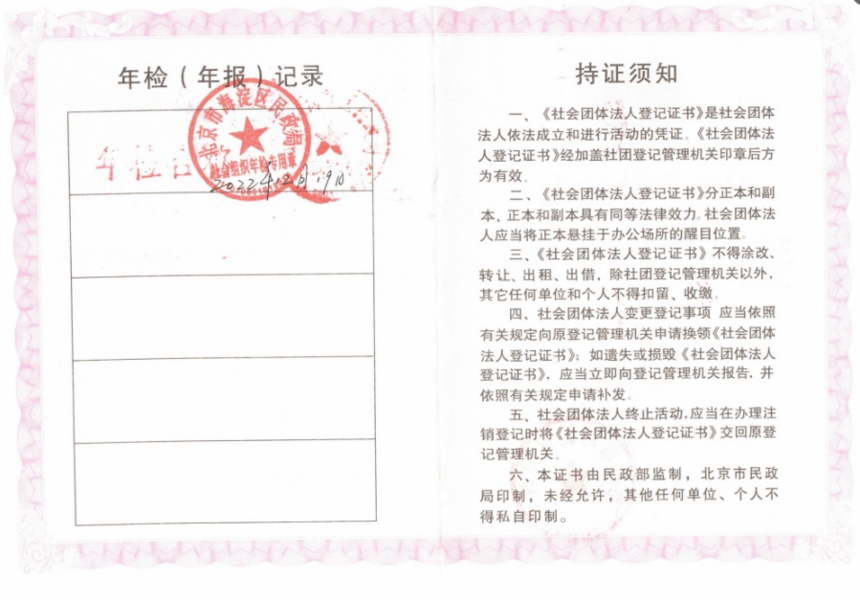 年检（年报）记录
北京市海淀区民政局
社会组织年检专用章
年检合
持证须知
一、《社会团体法人登记证书》是社会团体
法人依法成立和进行活动的凭证。《社会团体法
人登记证书》经加盖社团登记管理机关印章后方
为有效。
二、《社会团体法人登记证书》分正本和副
本，正本和副本具有同等法律效力。社会团体法
人应当将正本悬挂于办公场所的醒目位置。
三、《社会团体法人登记证书》不得涂改、
转让、出租、出借，除社团登记管理机关以外，
其它任何单位和个人不得扣留、收缴。
四、社会团体法人变更登记事项 应当依照
有关规定向原登记管理机关申请换领《社会团体
法人登记证书》；如遗失或损毁《社会团体法人
登记证书》，应当立即向登记管理机关报告，并
依照有关规定申请补发。
五、社会团体法人终止活动，应当在办理注
销登记时将《社会团体法人登记证书》交回原登
记管理机关。
六、本证书由民政部监制，北京市民政
局印制，未经允许，其他任何单位、个人不
得私自印制。